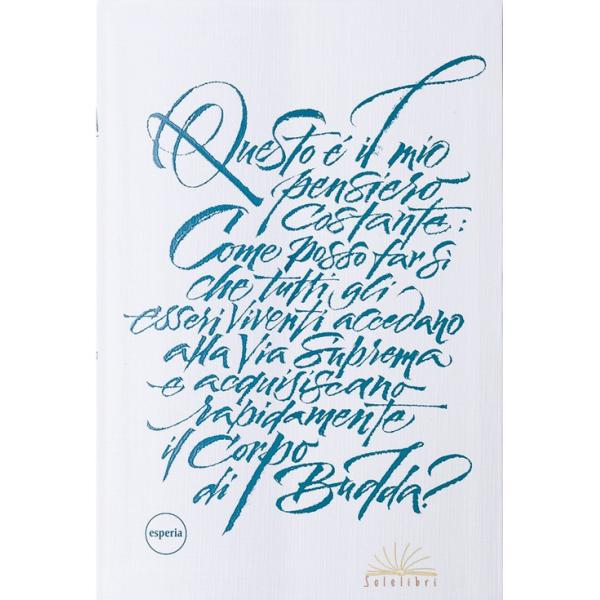 Questo é il mio
pensiero
Costante:
Come posso far sì
che tutti gli
esseri viventi accedano
alla Via Suprema
e acquisiscano
rapidamente
il Corpo
di Budda?
esperia
Solelibri